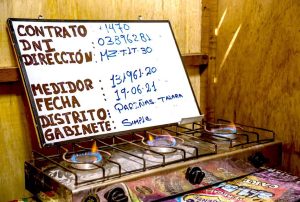 CONTRATO : 1470
DNI : 03896281
DIRECCIÓN : MZ-T LT 30
MEDIDOR : 131961-20
FECHA : 19-06-21
DISTRITO : PARIÑAS TALARA
GABINETE : Simple